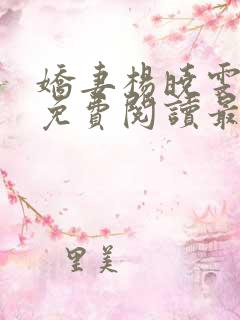 嬌妻楊曉雯
免費閱讀最
里美